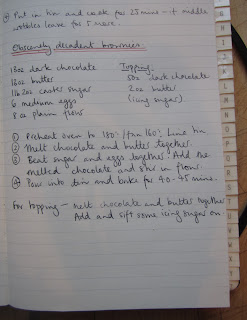 ④ Put in tin and cook for 25 mins – if middle
wobbles leave for 5 more.
Obscenely decadent brownies.
13oz dark chocolate
13oz butter
1lb 2oz caster sugar
6 medium eggs
8 oz plain flour
Topping:
5oz dark chocolate
2oz butter
(icing sugar)
① Preheat oven to 180°/fan 160°. Line tin
② Melt chocolate and butter together.
③ Beat sugar and eggs together. Add the
melted chocolate and stir in flour.
④ Pour into tin and bake for 40-45 mins.
For topping – melt chocolate and butter together
Add and sift some icing sugar on